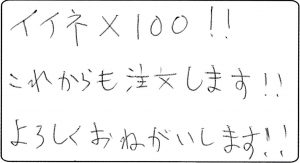 イイネ×100!!
これからも注文します!!
よろしくおねがいします!!